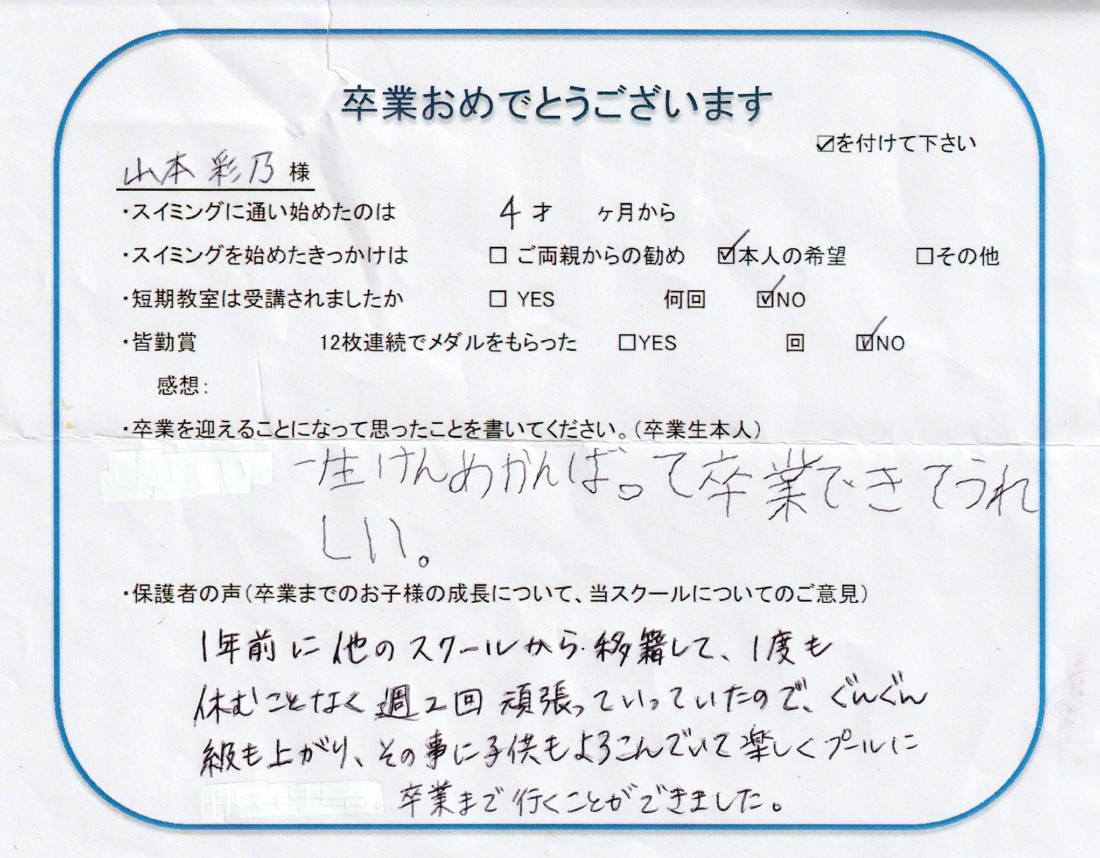 卒業おめでとうございます
☑を付けて下さい
山本彩乃 様
・スイミングに通い始めたのは 4 才 ヶ月から
・スイミングを始めたきっかけは □ ご両親からの勧め ☑本人の希望 □その他
・短期教室は受講されましたか □ YES 何回 ☑NO
・皆勤賞 12枚連続でメダルをもらった □YES 回 ☑NO
感想:
・卒業を迎えることになって思ったことを書いてください。(卒業生本人)
一生けんめかんば。て卒業できてうれ
しい。
・保護者の声(卒業までのお子様の成長について、当スクールについてのご意見)
1年前に他のスクールから移籍して、1度も
休むことなく週2回頑張っていっていたので、ぐんぐん
級も上がり、その事に子供もよろこんでいて楽しくプールに
卒業まで行くことができました。